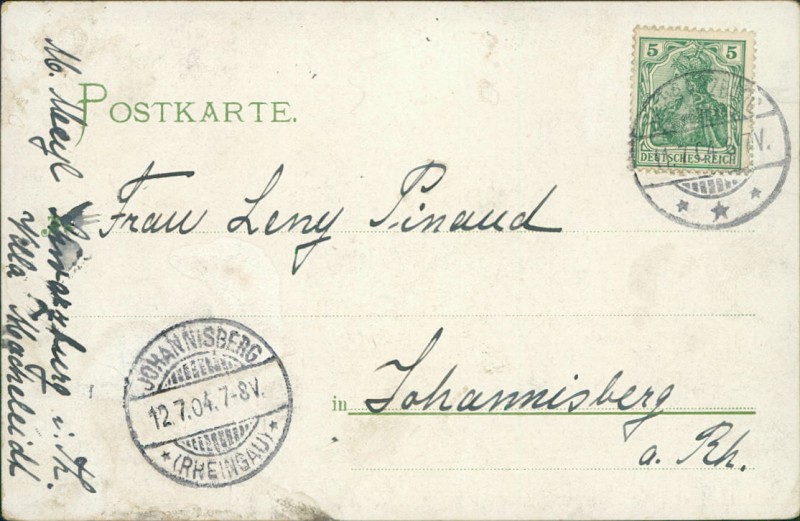 POSTKARTE.
5 5
DEUTSCHES REICH
Frau Leny Pinaud
in Johannisberg
a. Rh.
JOHANNISBERG
12.7.04. 7-8V.
* (RHEINGAU) *
Schwarzburg i. Th.
Villa Macheleidt